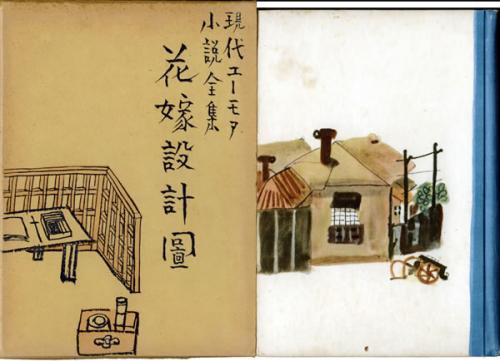 現代ユーモア
小説全集
花嫁設計圖